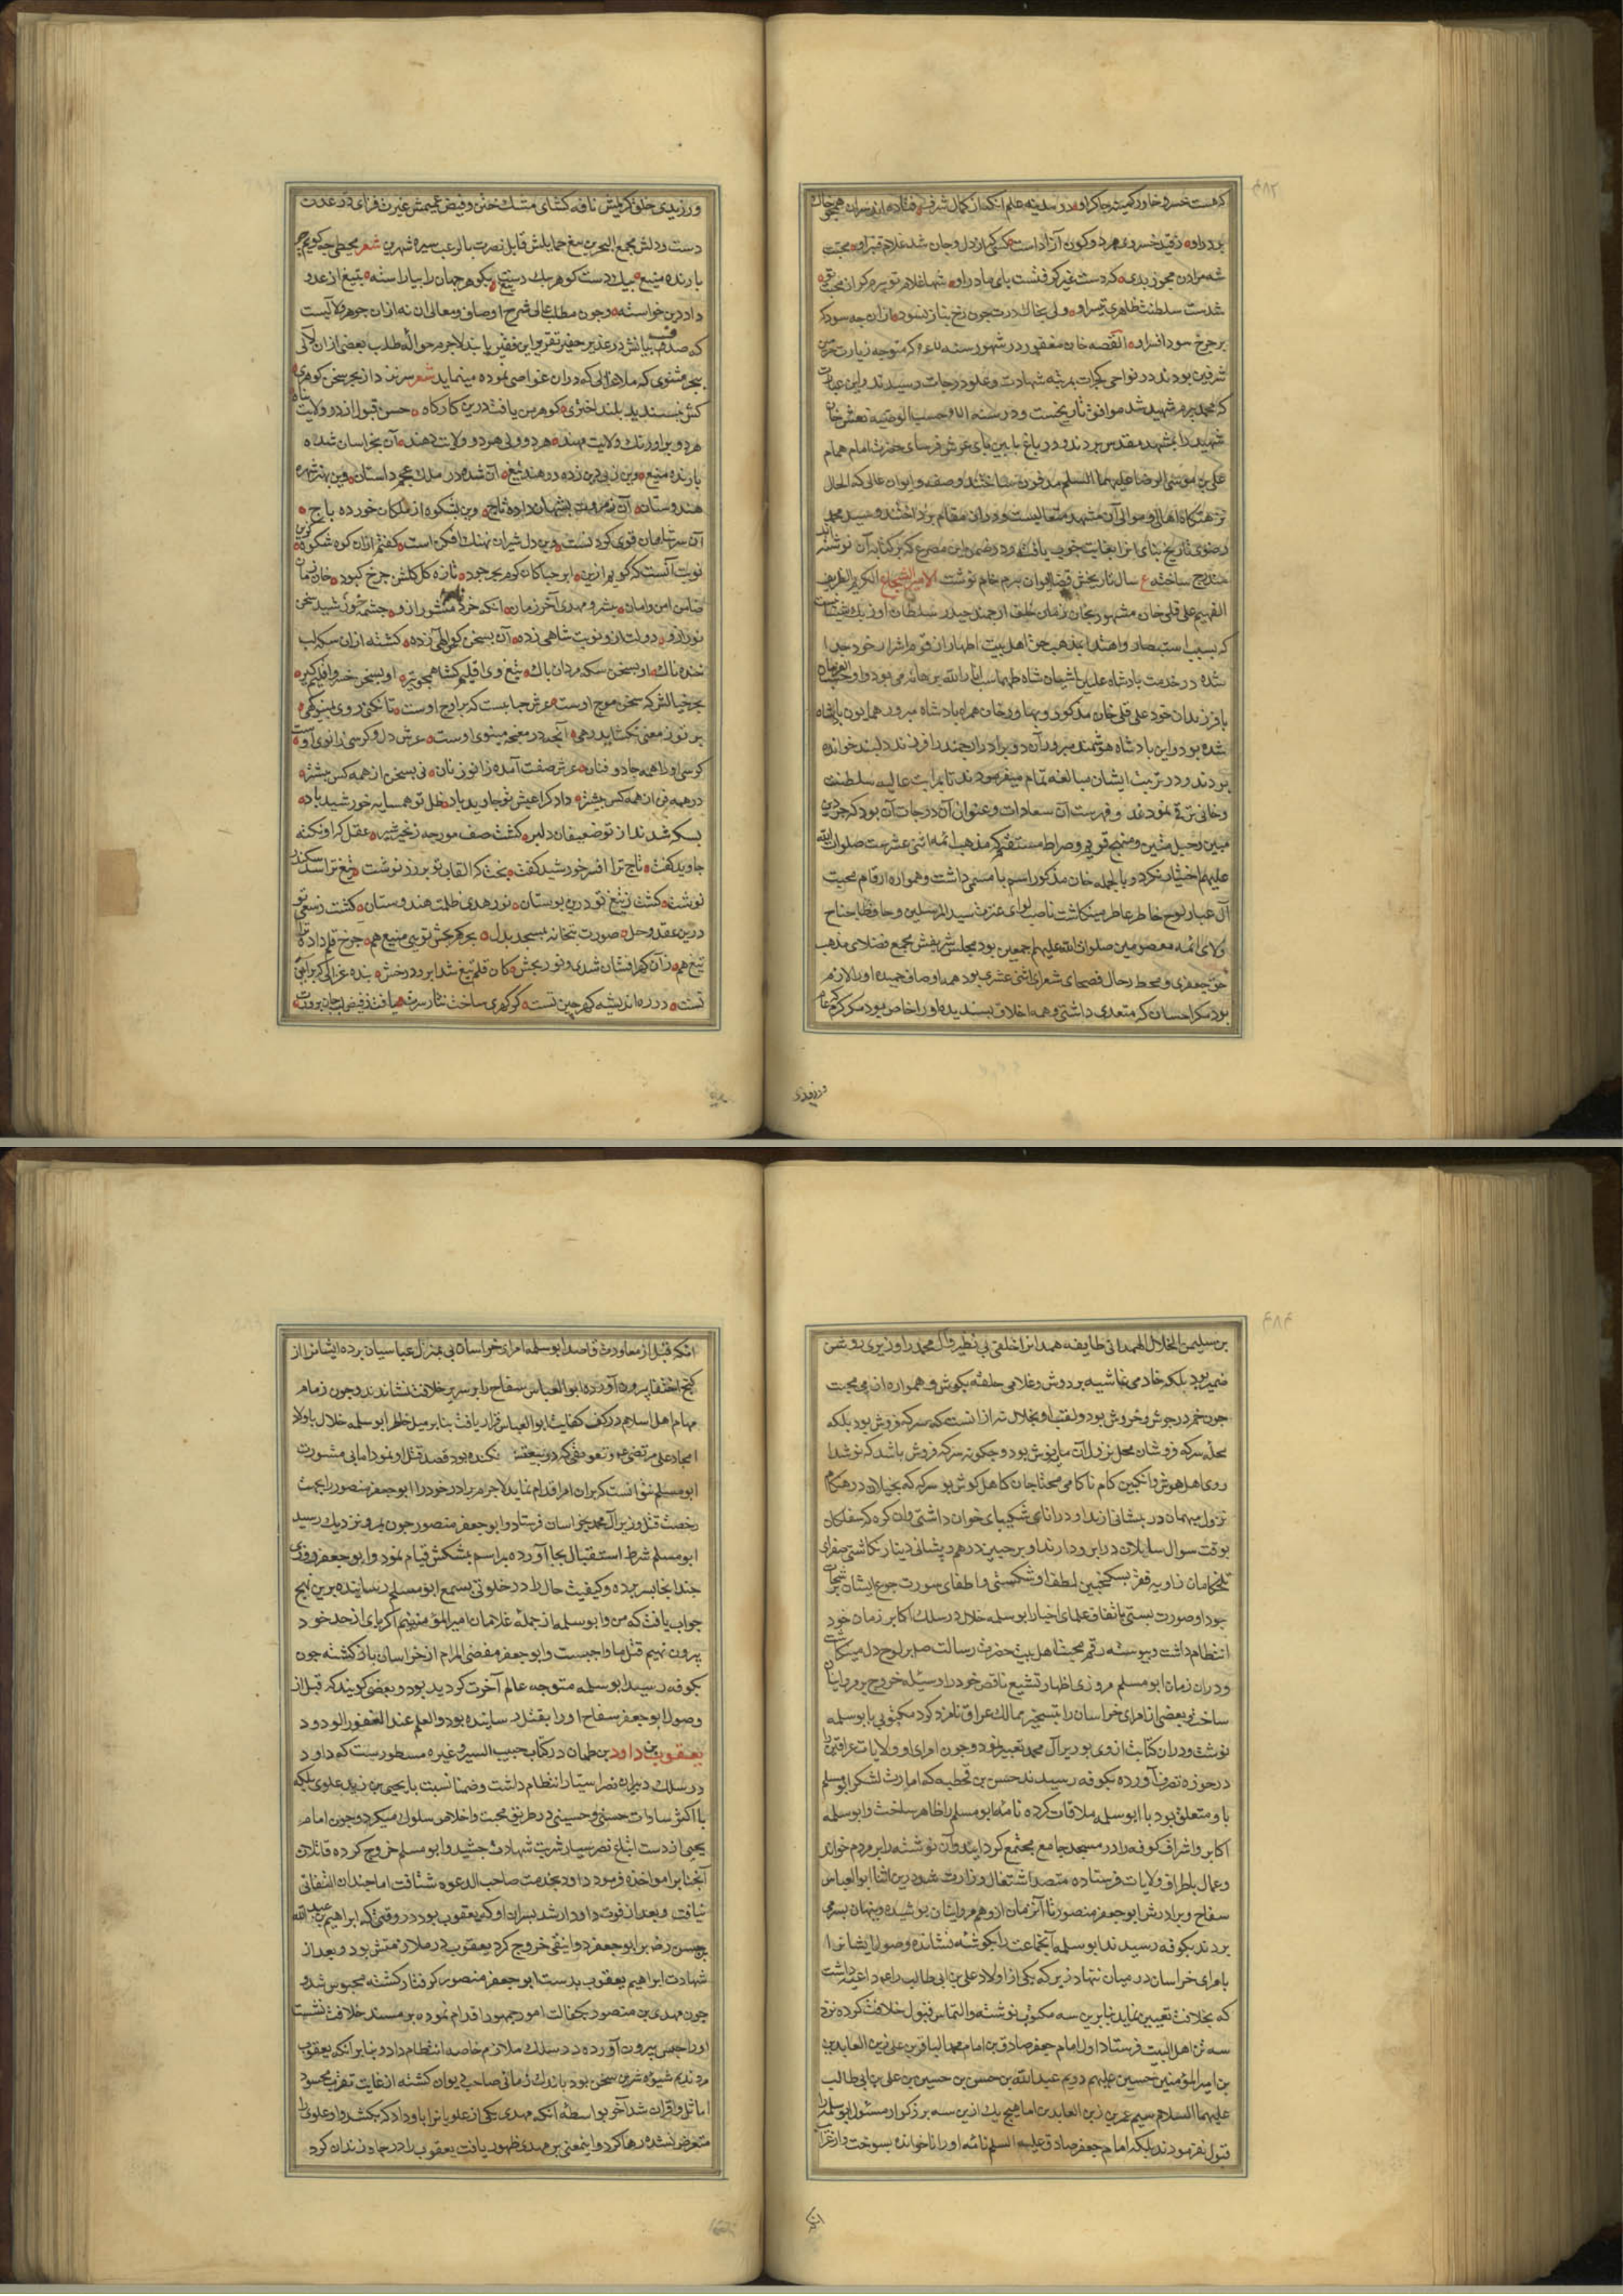 که هست خسرو خاور کمینه چاکر او در سفینه علم آنکه از کمال شرف فتاده اند سران همچو خاک
بر در او رقید خسروی هر دو کون آزادست کسی که از دل و جان شد غلام قنبر او محبت
شه مردان مجو ز بی پدری که دست غیر گرفتست پای مادر او شها غلام تو بیرم که از محبت تو
شدست سلطنت ظاهری میسر او ولی بخاک درت چون رخ نیاز نسود ازان چه سود که
بر چرخ سود افسر او القصه خان مغفور در شهور سنه که متوجه زیارت حرمین
شریفین بودند در نواحی گجرات بمرتبه شهادت و علو درجات رسیدند و این عبارت
که محمد بیرم شهید شد موافق تاریخست و در سنه حسب الوصیه نعش خان
شهید را بمشهد مقدس بردند و در باغ پایین پای عرش فرسای حضرت امام همام
علی بن موسی الرضا علیهما السلم مدفون ساختند و صفه و ایوان عالی که الحال
نزهتگاه اهالی و موالی آن مشهد متعالیست و دران مقام پرداختند و سید محمد
رضوی تاریخ بنای انرا بغایت خوب یافته و در ضمن این مصرع که بر کتابه آن نوشته اند
مندرج ساخته ع سال تاریخش قضا ایوان بیرم خان نوشت الامیر الشجاع الکریم الظریف
الفهیم علی قلی خان مشهور بخان زمان خلف ارجمند حیدر سلطان اوزبک شیبانیست
که بسبب استبصار و اهتدا بمذهب حق اهل بیت اطهار از قوم اشرار خود جدا
شده در خدمت پادشاه علیین آشیان شاه طهماسب انار الله برهانه می بود و او
با فرزندان خود علی قلی خان مذکور و بهادر خان همراه پادشاه مبرور همایون پادشاه
شده بود و این پادشاه هوشمند مبرور آن دو برادر ارجمند را فرزند دلبند خوانده
بودند و در تربیت ایشان مبالغه تمام میفرمودند تا بمراتب عالیه سلطنت
و خانی ترقی نمودند و فهرست آن سعادات و عنوان آن درجات آن بود که چون دین
مبین و حبل متین و منهج قویم و صراط مستقیم مذهب ائمه اثنی عشرست صلوات الله
علیهم اختیار کرد و بالجمله خان مذکور اسم با مسمی داشت و همواره ارقام محبت
آل عبا بر لوح خاطر عاطر مینگاشت ناصب لوای عترت سید المرسلین و حافظ جناح
ولای ائمه معصومین صلوات الله علیهم اجمعین بود مجلس شریفش مجمع فضلای مذهب
حق جعفری و محط رحال فصحای شعرای اثنی عشری بود همه اوصاف حمیده او را لازم
بود مگر احسان که متعدی داشتی و همه اخلاق پسندیده او را خاص بود مگر کرم عام
ورزیدی
ورزیدی خلق کریمش نافه گشای مشک ختن و فیض عمیمش غیرت فزای در عدن
دست و دلش مجمع البحرین تیغ حمایلش قابل نصرت بالرعب مسیره شهرین شعر محیطی چه گویم چو
بارنده میغ بیک دست گوهر بیک دست تیغ بگوهر جهان را بیاراسته بتیغ از عدو
داد دین خواسته و چون مطلب عالی شرح اوصاف و معالی ان نه ازان جوهر لالیست
که صدف بیانش در عذیر حقیر تقریر این فقیر یابند لاجرم حواله طلب بعضی ازان لالی
ببحر مثنوی که ملا غزالی که دران غواصی نموده مینماید شعر سر نزد از بحر سخن گوهری
کش نپسندید بلند اختری گوهر من یافت درین کارگاه حسن قبول از در ولایت پناه
هر دو بر اورنگ ولایت مهند هر دو ولی هر دو ولایت دهند آن بخراسان شده
بارنده میغ وین ز پی دین زده در هند تیغ آن شده در ملک عجم داستان وین بهنر شهره
هندوستان آن ز مروت بشهان داده تاج وین بشکوه از ملکان خورده باج
آن سر شاهان قوی گردنست وین دل شیران نهنگ افکن است گفتم ازان کوه شکوه گزین
نوبت آنست که گویم ازین ابر حیا کان گوهر بحر جود تازه گل گلشن چرخ کبود خان زمان
ضامن امن و امان بیشرو مهدی آخر زمان آنکه خرد منشور ازو چشمه خورشید سخن
نور ازو دولت ازو نوبت شاهی زده آن بسخن کوس الهی زده گشته ازان سکه لب
خنده ناک او بسخن سکه مردان پاک تیغ وی اقلیم گشا همچو تیر او بسخن خسرو اقلیم گیر
بحر خیالش که سخن موج اوست عرش حبابست که بر اوج اوست تا نکنی روی بمینوی
بر تو در معنی نگشاید رهی آنچه در معنی مینوی اوست عرش دل و کرسی زانوی اوست
کرسی او همه جادو فنان عرش صفت آمده زانو زنان نی بسخن از همه کس بیشتر
در همه فن از همه کس بیشتر داد گرا عیش تو جاوید باد ظل تو همسایه خورشید باد
بسکه شدند از تو ضعیفان دلیر گشت صف مورچه زنجیر شیر عقل گر او نکته
جاوید گفت تاج ترا افسر خورشید گفت بخت که القاب تو بر زر نوشت تیغ ترا سد سکندر
نوشت گشت ز تیغ تو درین بوستان نور هدی ظلمت هندوستان گشت ز سعی تو
درین عقد و حل صورت بتخانه بمسجد بدل بحر گهر بخش تویی میغ هم چرخ قلم داد ترا
تیغ هم زان گهر افشان شدی و نور بخش کان قلم تیغ شد ابر و درخش بنده غزالی که
تست در ره اندیشه گهر چین تست گوهری ساخت نثار سرت یافت ز فیض لب جان پرورت
بن سلیمن الخلال الهمدانی طایفه همدانرا خلفی بی نظیر و آل محمد را وزیری روشن
ضمیر بود بلکه خادمی غاشیه بر دوش و غلامی حلقه بگوش و همواره از می محبت
چون خم در جوش و خروش بود و لقب او بخلال نه ازانست که سرکه فروش بود بلکه
محله سرکه فروشان محل نزول آن می نوش بود و چگونه سرکه فروش باشد که نوشدا
روی اهل هوش و انگبین کام ناکامی محتاجان کاهل کوش بو سرکه که بخیلان در هنگام
نزول میهمان در پیشانی ارند او در انای شکیبای خوان داشتی وان گره که سفلگان
بوقت سوال سایلان در ابرو دارند او بر جبین درهم و پیشانی دینار نگاشتی صفرای
تلخکامان زاویه فقر بسکنجبین لطف او شکستی و اطفای سورت جوع ایشان
جود او صورت بستی باتفاق علمای اخبار ابو سلمه خلال در سلک اکابر زمان خود
انتظام داشت و پیوسته رقم محبت اهل بیت حضرت رسالت صلعم بر لوح دل مینگاشت
و دران زمان ابو مسلم مروزی اظهار تشیع ناقص خود را وسیله خروج بر مروانیان
ساخت و بعضی از امرای خراسان را بتسخیر ممالک عراق نامزد کرد مکتوبی بابو سلمه
نوشت و دران کتابت از وی بوزیر آل محمد تعبیر نمود و چون امرای او ولایات عراقین را
در حوزه تصرف آورده بکوفه رسیدند حسن بن قحطبه که امارت لشکر ابو مسلم
باو متعلق بود با ابو سلمه ملاقات کرده نامه ابو مسلم را ظاهر ساخت و ابو سلمه
اکابر و اشراف کوفه را در مسجد جامع مجتمع گردانید و آن نوشته را بر مردم خواند
و عمال باطراف ولایات فرستاده متصدی اشتغال وزارت شد و درین اثنا ابو العباس
سفاح و برادرش ابو جعفر منصور تا آنزمان از وهم مروانیان پوشیده و پنهان بسر می
بردند بکوفه رسیدند ابو سلمه آنجماعت را بگوشه نشانده وصول ایشانرا
بامرای خراسان در میان ننهاد زیرکه یکی از اولاد علی بن ابی طالب را داعیه داشت
که بخلافت تعیین نماید بنابرین سه مکتوب نوشته و التماس قبول خلافت کرده نزد
سه تن اهل البیت فرستاد اول امام جعفر صادق بن امام محمد الباقر بن علی زین العابدین
بن امیر المؤمنین حسین علیهم دویم عبد الله بن حسن بن حسین بن علی بن ابی طالب
علیهما السلام سیم عمر بن زین العابدین اما هیچ یک ازین سه بزرگوار مسئول ابو سلمه را
قبول نفرمودند بلکه امام جعفر صادق علیه السلم نامه او را ناخوانده بسوخت و از غرایب
آنکه قبل از معاودت قاصد ابو سلمه امرای خراسان پی بمنزل عباسیان برده ایشانرا از
کنج اختفا بیرون آورده ابو العباس سفاح را بر سریر خلافت نشاندند و چون زمام
مهام اهل اسلام در کف کفایت ابو العباس قرار یافت بنابر میل خاطر ابو سلمه خلال باولاد
امجاد علی مرتضی و تعویقی که در بیعتش نکرده بود قصد قتل او نمود اما بی مشورت
ابو مسلم نتوانست که بران امر اقدام نماید لاجرم برادر خود را ابو جعفر منصور را بجهت
رخصت قتل وزیر آل محمد بخراسان فرستاد و ابو جعفر منصور چون بمرو نزدیک رسید
ابو مسلم شرط استقبال بجا آورده بمراسم پیشکش قیام نمود و ابو جعفر روزی
چند انجا بسر برده و کیفیت حال را در خلوتی بسمع ابو مسلم رسانیده برین نهج
جواب یافت که من و ابو سلمه از جمله غلامان امیر المؤمنینیم اگر پای از حد خود
بیرون نهیم قتل ما واجبست و ابو جعفر مقضی المرام از خراسان بازگشته چون
بکوفه رسید ابو سلمه متوجه عالم آخرت گردیده بود و بعضی گویند که قبل از
وصول ابو جعفر سفاح او را بقتل رسانیده بود والعلم عند الغفور الودود
یعقوب بن داود بن طهمان در کتاب حبیب السیر و غیره مسطورست که داود
در سلک دبیران نصر سیار انتظام داشت و ضمنا نسبت با یحیی بن زید علوی بلکه
با اکثر سادات حسنی و حسینی در طریق محبت و اخلاص سلوک میکرد و چون امام
یحیی از دست اتباع نصر سیار شربت شهادت چشید و ابو مسلم خروج کرده قاتلان
آنجنابرا مواخذه فرمود داود بخدمت صاحب الدعوه شتافت اما چندان التفاتی
نیافت و بعد از فوت داود ارشد پسران او که یعقوب بود در وقتی که ابراهیم بن عبد الله
بن حسن رضه بر ابو جعفر دوانیقی خروج کرد یعقوب در ملازمتش بود و بعد از
شهادت ابراهیم یعقوب بدست ابو جعفر منصور گرفتار گشته محبوس شد و
چون مهدی بن منصور بکفالت امور جمهور اقدام نموده بر مسند خلافت نشست
او را حبس بیرون آورده در سلک ملازم خاصه انتظام داد و بنابر آنکه یعقوب
مردی شیوه شیرین سخن بود باندک زمانی صاحب دیوان گشته از غایت تقرب محسود
اماثل و اقران شد آخر بواسطه آنکه مهدی یکی از علویانرا باو داد که بکشد و او علوی را
متعرض نشده رها کرد و اینمعنی بن مهدی ظهور یافت یعقوب را در چاه زندان کرد